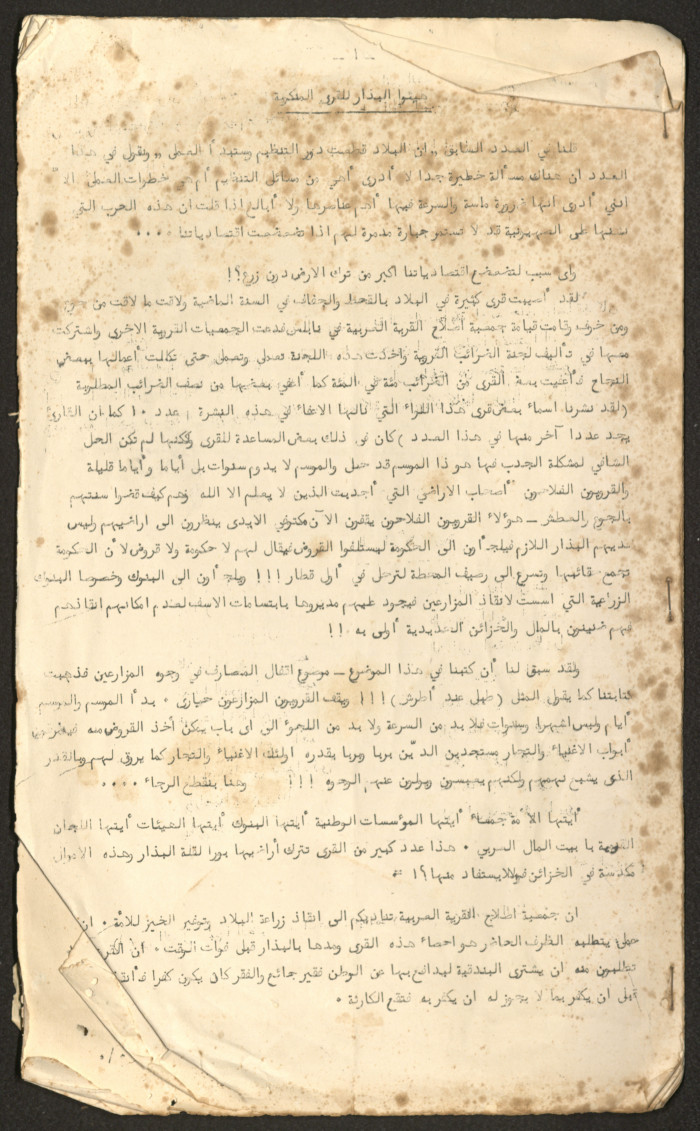 - ١ -
هيئوا البذار للقرى المنكوبة
قلنا في العدد السابق ,, ان البلاد قطعت دور التنظيم وستبدأ العمل ,, ونقول في هذا
العدد ان هناك مسألة خطيرة جدا لا أدرى أهي من مسائل التنظيم أم هي خطوات العمل الا
انني أدرى انها ضرورة ماسة والسرعة فيها أهم عناصرها ولا أبالغ اذا قلت ان هذه الحرب التي
نشنها على الصهيونية قد لا تستمر جبارة مدمرة لهم اذا تضعضعت اقتصادياتنا ....
وأى سبب لتضعضع اقتصادياتنا اكبر من ترك الارض دون زرع؟!
لقد أصيبت قرى كثيرة في البلاد بالقحط والجفاف في السنة الماضية ولاقت ما لاقت من جوع
ومن خوف وقامت قيامة جمعية أصلاح القرية العربية في نابلس فدعت الجمعيات القروية الاخرى واشتركت
معها في تأليف لجنة الضرائب القروية واخذت هذه اللجنة تعمل وتعمل حتى تكللت أعمالها ببعض
النجاح فأعفيت بعض القرى من الضرائب مئة في المئة كما أعفي بعضها من نصف الضرائب المطلوبة
(لقد نشرنا اسماء بعض قرى هذا القراء التي نالها الاعفاء في هذه النشرة عدد ١٠ كما ان القارئ
يجد عددا آخر منها في هذا العدد) كان في ذلك بعض المساعدة للقرى ولكنها لم تكن الحل
الشافي لمشكلة الجدب فيها هو ذا الموسم قد حل والموسم لا يدوم سنوات بل أياما وأياما قليلة
والقرويون الفلاحون أصحاب الاراضي التي أجدبت الذين لا يعلم الا الله وهم كيف قضوا سنتهم
بالجوع والعطش ــ هؤلاء القرويون الفلاحون يقفون الآن مكتوفي الايدى ينظرون الى اراضيهم وليس
لديهم البذار اللازم فيلجأون الى الحكومة ليستلفوا القروض فيقال لهم لا حكومة ولا قروض لأن الحكومة
تجمع حقائبها وتسرع الى رصيف المحطة لترحل في أول قطار !!! ويلجأون الى البنوك وخصوصا البنوك
الزراعية التي اسست لانقاذ المزارعين فيجود عليهم مديروها بابتسامات الاسف لعدم امكانهم انقاذهم
فهم ضنينون بالمال والخزائن الحديدية أولى به !!
ولقد سبق لنا أن كتبنا في هذا الموضوع ــ موضوع اقفال المصارف في وجوه المزارعين فذهبت
كتابتنا كما يقول المثل (طبل عند أطرش) !!! ويقف القرويون المزارعون حيارى . بدأ الموسم والموسم
أيام وليس اشهرا وسنوات فلا بد من السرعة ولا بد من اللجوء الى أى باب يمكن أخذ القروض منه
أبواب الاغنياء والتجار مستجدين الدّين بربا وربا يقدره اولئك الاغنياء والتجار كما يروق لهم وبالقدر
الذى يشبع نهمهم ولكنهم يعبسون ويولون عنهم الوجوه !!! وهنا ينقطع الرجاء ....
أيتها الأمة جمعاء أيتها المؤسسات الوطنية أيتها البنوك أيتها الهيئات أيتها اللجان
القومية يا بيت المال العربي . هذا عدد كبير من القرى تترك أراضيها بورا لقلة البذار وهذه الاموال
مكدسة في الخزائن يستفاد منها؟!
ان جمعية اصلاح القرية العربية تناديكم الى انقاذ زراعة البلاد وتوفير الخبز للامة . ان
عمل يتطلبه الظرف الحاضر هو احصاء هذه القرى ومدها بالبذار قبل فوات الوقت . ان
تطلبون منه ان يشترى البندقية ليدافع بها عن الوطن فقير جائع والفقر كاد يكون كفرا
قبل ان يكفر بما لا يجوز له ان يكفر به فتقع الكارثة .